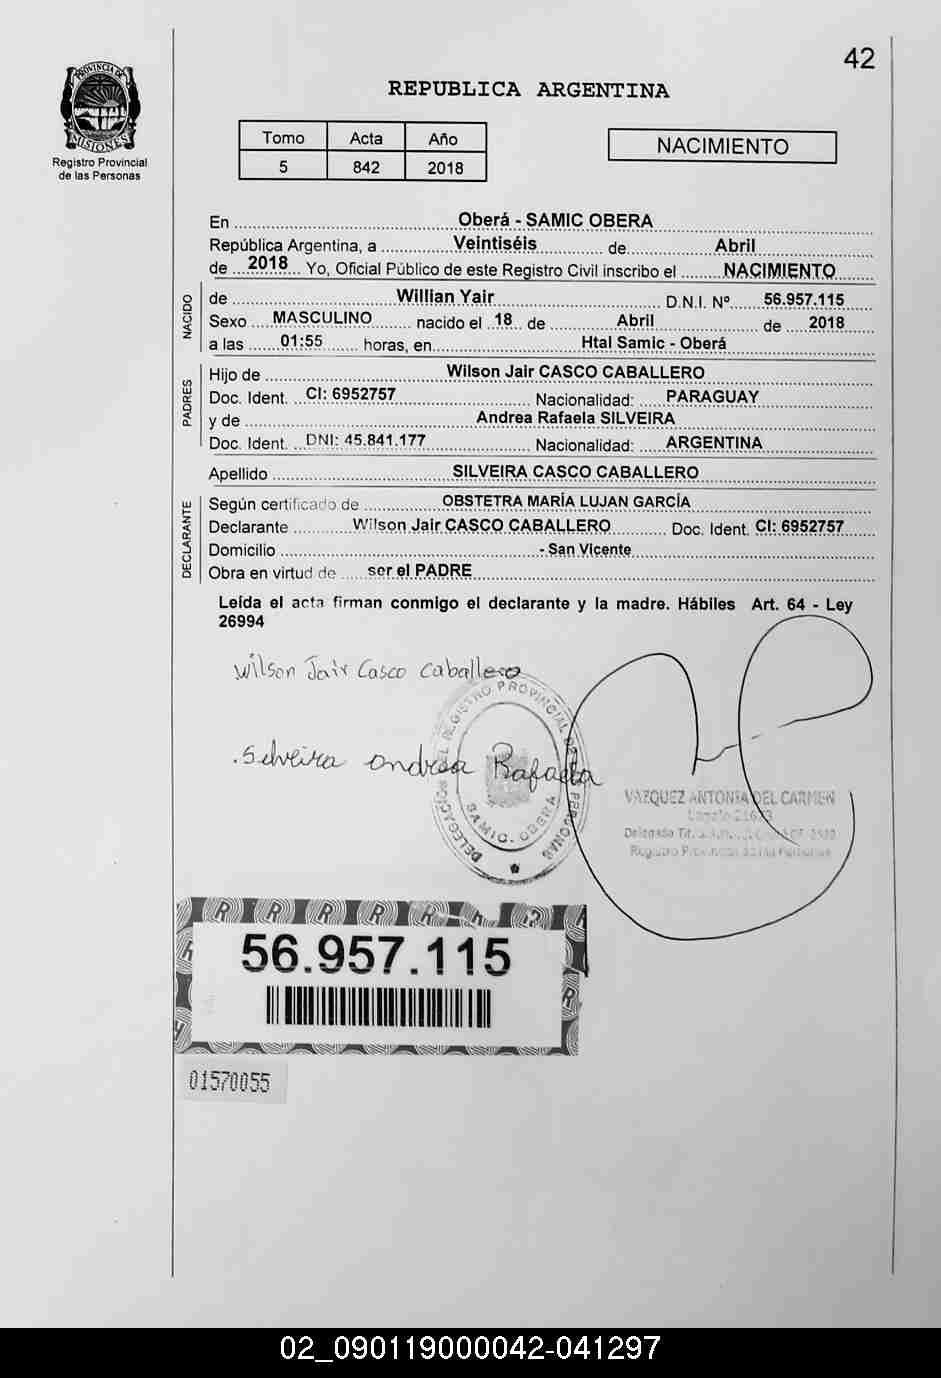 42
PROVINCIA DE
MISIONES
Registro Provincial
de las Personas
REPUBLICA ARGENTINA
Tomo Acta Año
5 842 2018
NACIMIENTO
En Oberá - SAMIC OBERA
República Argentina, a Veintiséis de Abril
de 2018 Yo, Oficial Público de este Registro Civil inscribo el NACIMIENTO
NACIDO
de Willian Yair D.N.I. Nº 56.957.115
Sexo MASCULINO nacido el 18 de Abril de 2018
a las 01:55 horas, en Htal Samic - Oberá
PADRES
Hijo de Wilson Jair CASCO CABALLERO
Doc. Ident. CI: 6952757 Nacionalidad: PARAGUAY
y de Andrea Rafaela SILVEIRA
Doc. Ident. DNI: 45.841.177 Nacionalidad: ARGENTINA
Apellido SILVEIRA CASCO CABALLERO
DECLARANTE
Según certificado de OBSTETRA MARÍA LUJAN GARCÍA
Declarante Wilson Jair CASCO CABALLERO Doc. Ident. CI: 6952757
Domicilio - San Vicente
Obra en virtud de ser el PADRE
Leída el acta firman conmigo el declarante y la madre. Hábiles Art. 64 - Ley
26994
Wilson Jair Casco Caballero
Silveira Andrea Rafaela
REGISTRO PROVINCIAL DE PERSONAS
DELEGACIÓN
SAMIC - OBERA
VAZQUEZ ANTONIA DEL CARMEN
Legajo
Delegado Tit.
Registro Provincial de las Personas
56.957.115
01570055
02_090119000042-041297